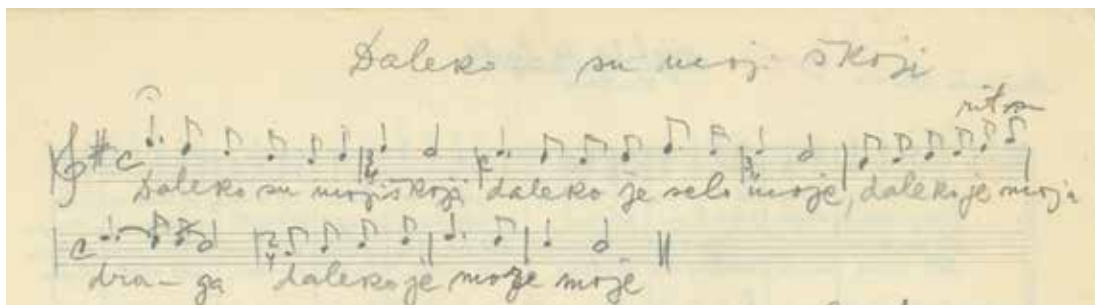 Daleko su moji škoji
rit
Daleko su moji škoji, daleko je selo moje, daleko je moja
dra-ga daleko je može moje